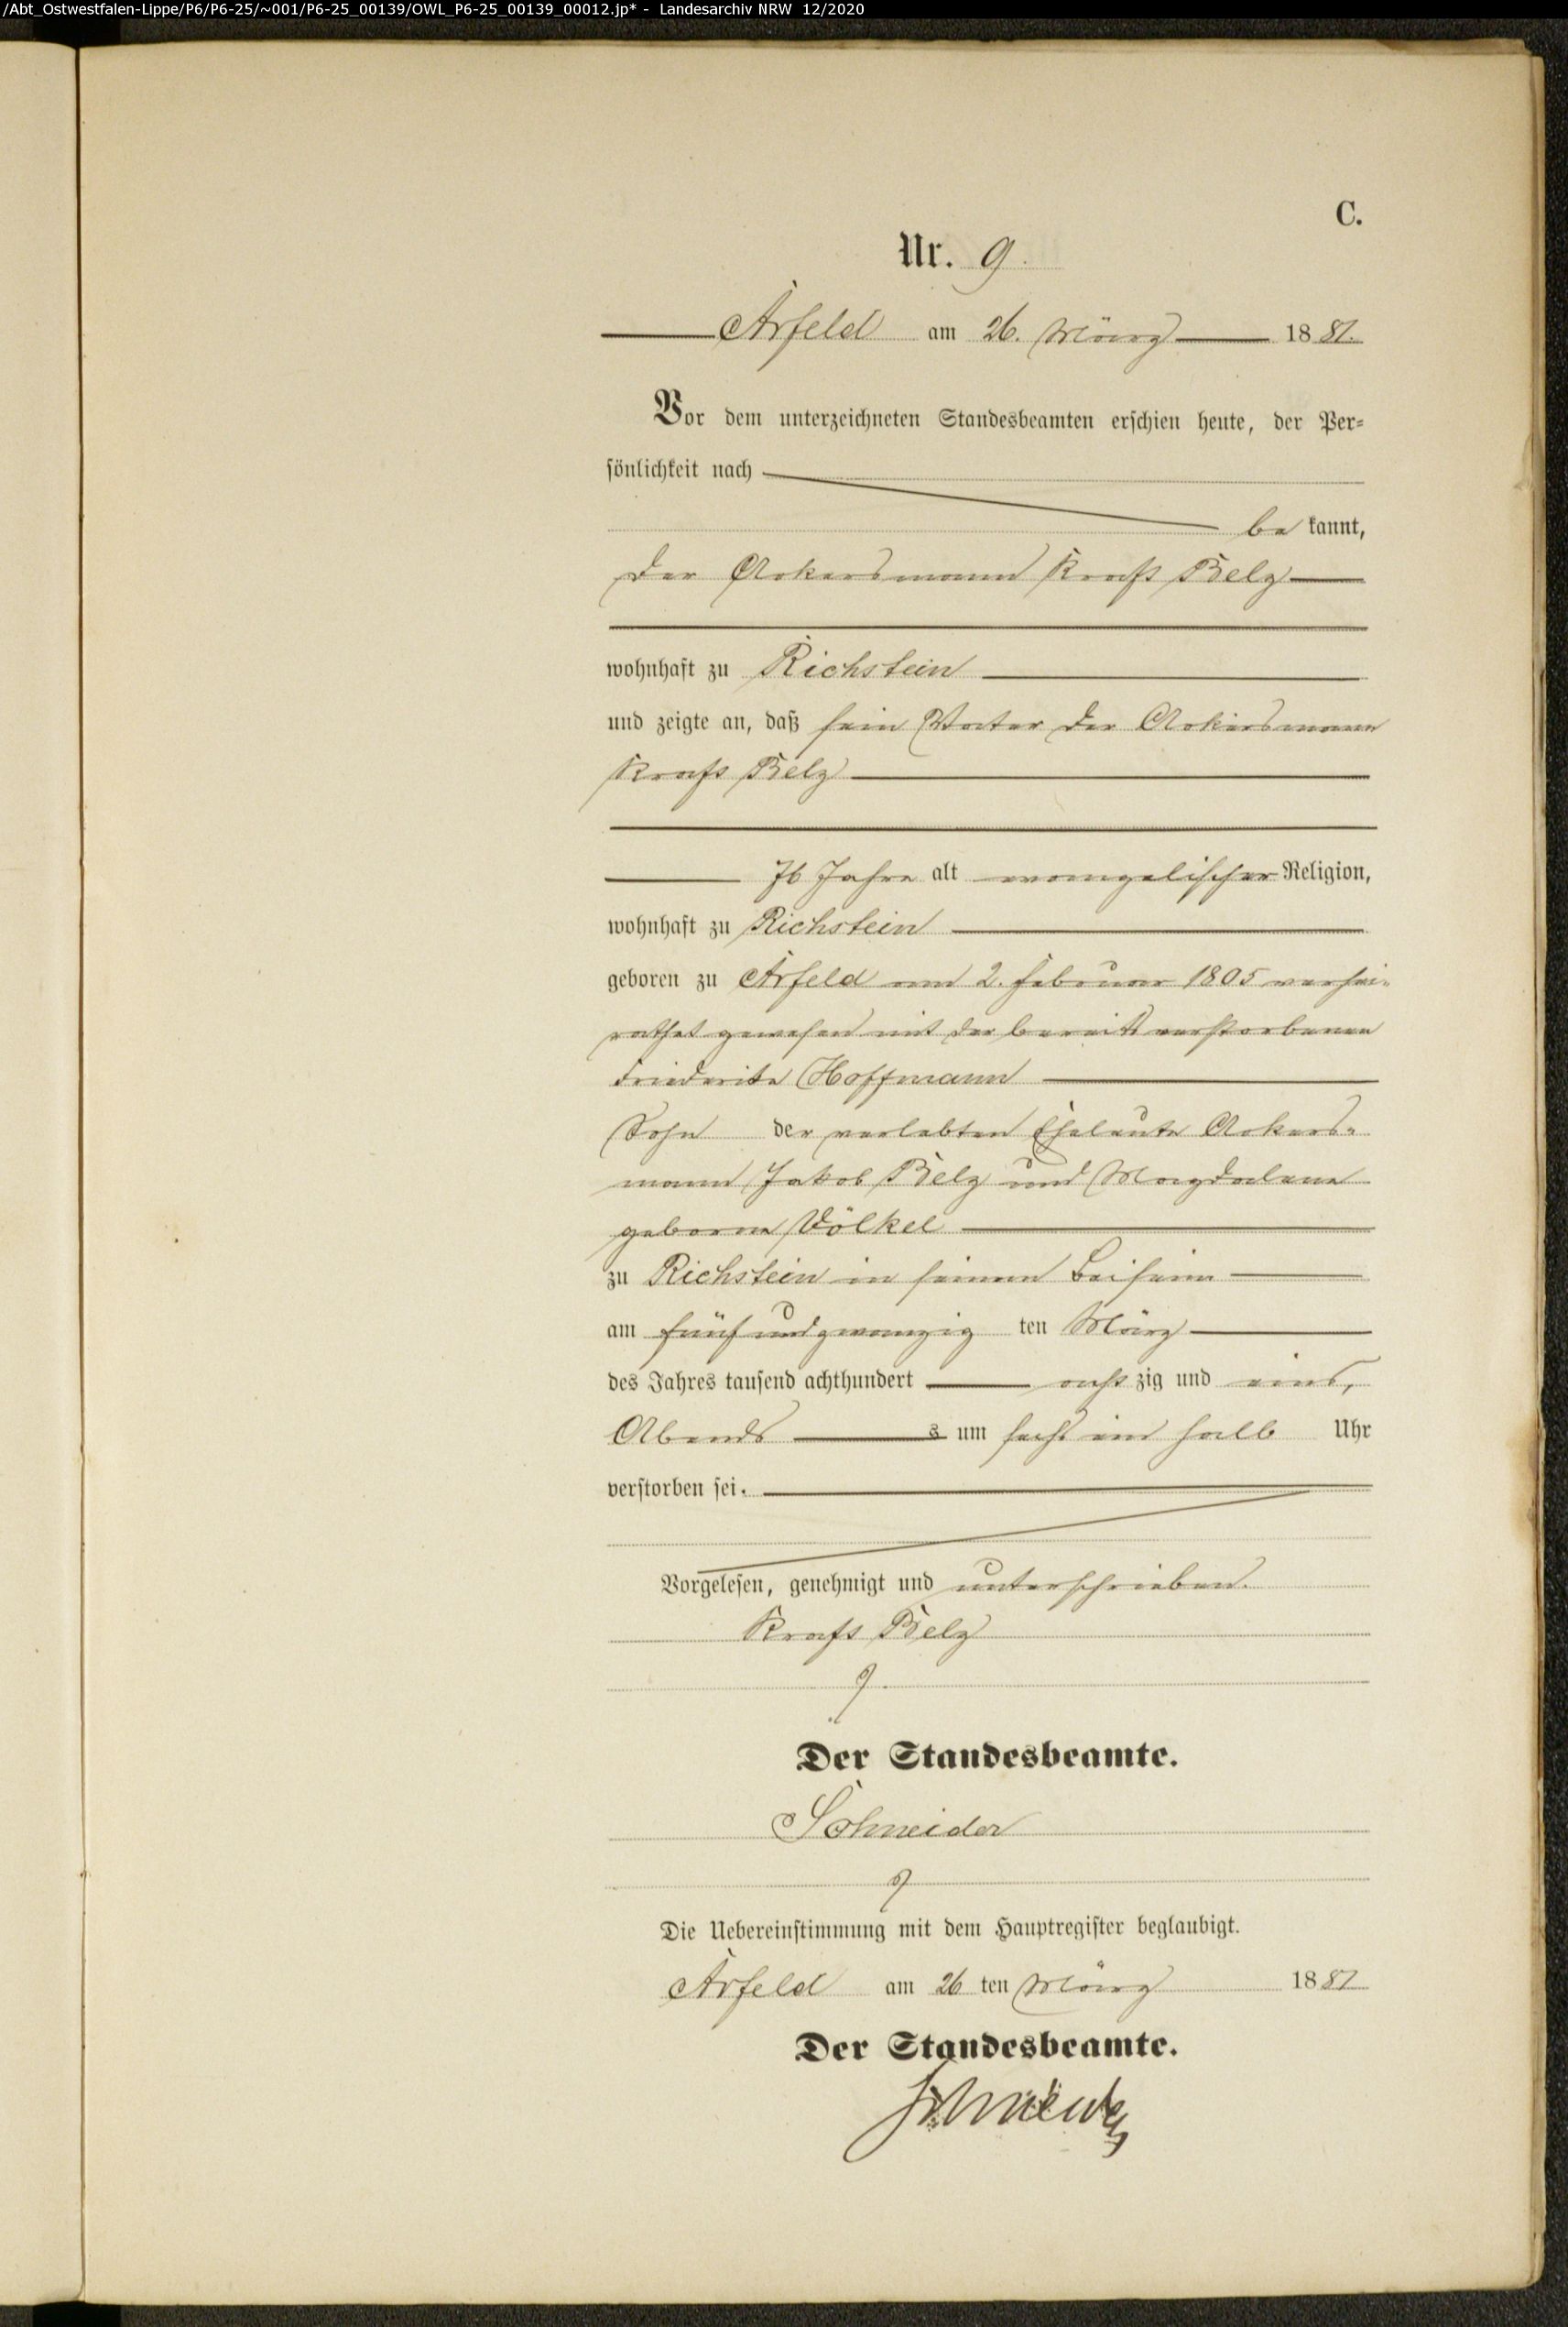 /Abt_Ostwestfalen-Lippe/P6/P6-25/~001/P6-25_00139/OWL_P6-25_00139_00012.jp* - Landesarchiv NRW 12/2020
C.
Nr. 9.
Arfeld am 26. März 1881.
Vor dem unterzeichneten Standesbeamten erschien heute, der Per-
sönlichkeit nach
be kannt,
der Ackersmann Kraft Belz
wohnhaft zu Richstein
und zeigte an, daß sein Vater der Ackersmann
Kraft Belz
76 Jahre alt evangelischer Religion,
wohnhaft zu Richstein
geboren zu Arfeld am 2. Februar 1805 verhei-
rathet gewesen mit der bereits verstorbenen
Friederike Hoffmann
Sohn der verlebten Eheleute Ackers-
mann Jakob Belz und Magdalena
geborne Völkel
zu Richstein in seinem Beisein
am fünf und zwanzig ten März
des Jahres tausend achthundert acht zig und eins,
Abends s um sechs ein halb Uhr
verstorben sei.
Vorgelesen, genehmigt und unterschrieben.
Kraft Belz
Der Standesbeamte.
Schneider
Die Uebereinstimmung mit dem Hauptregister beglaubigt.
Arfeld am 26 ten März 1881
Der Standesbeamte.
Schneider